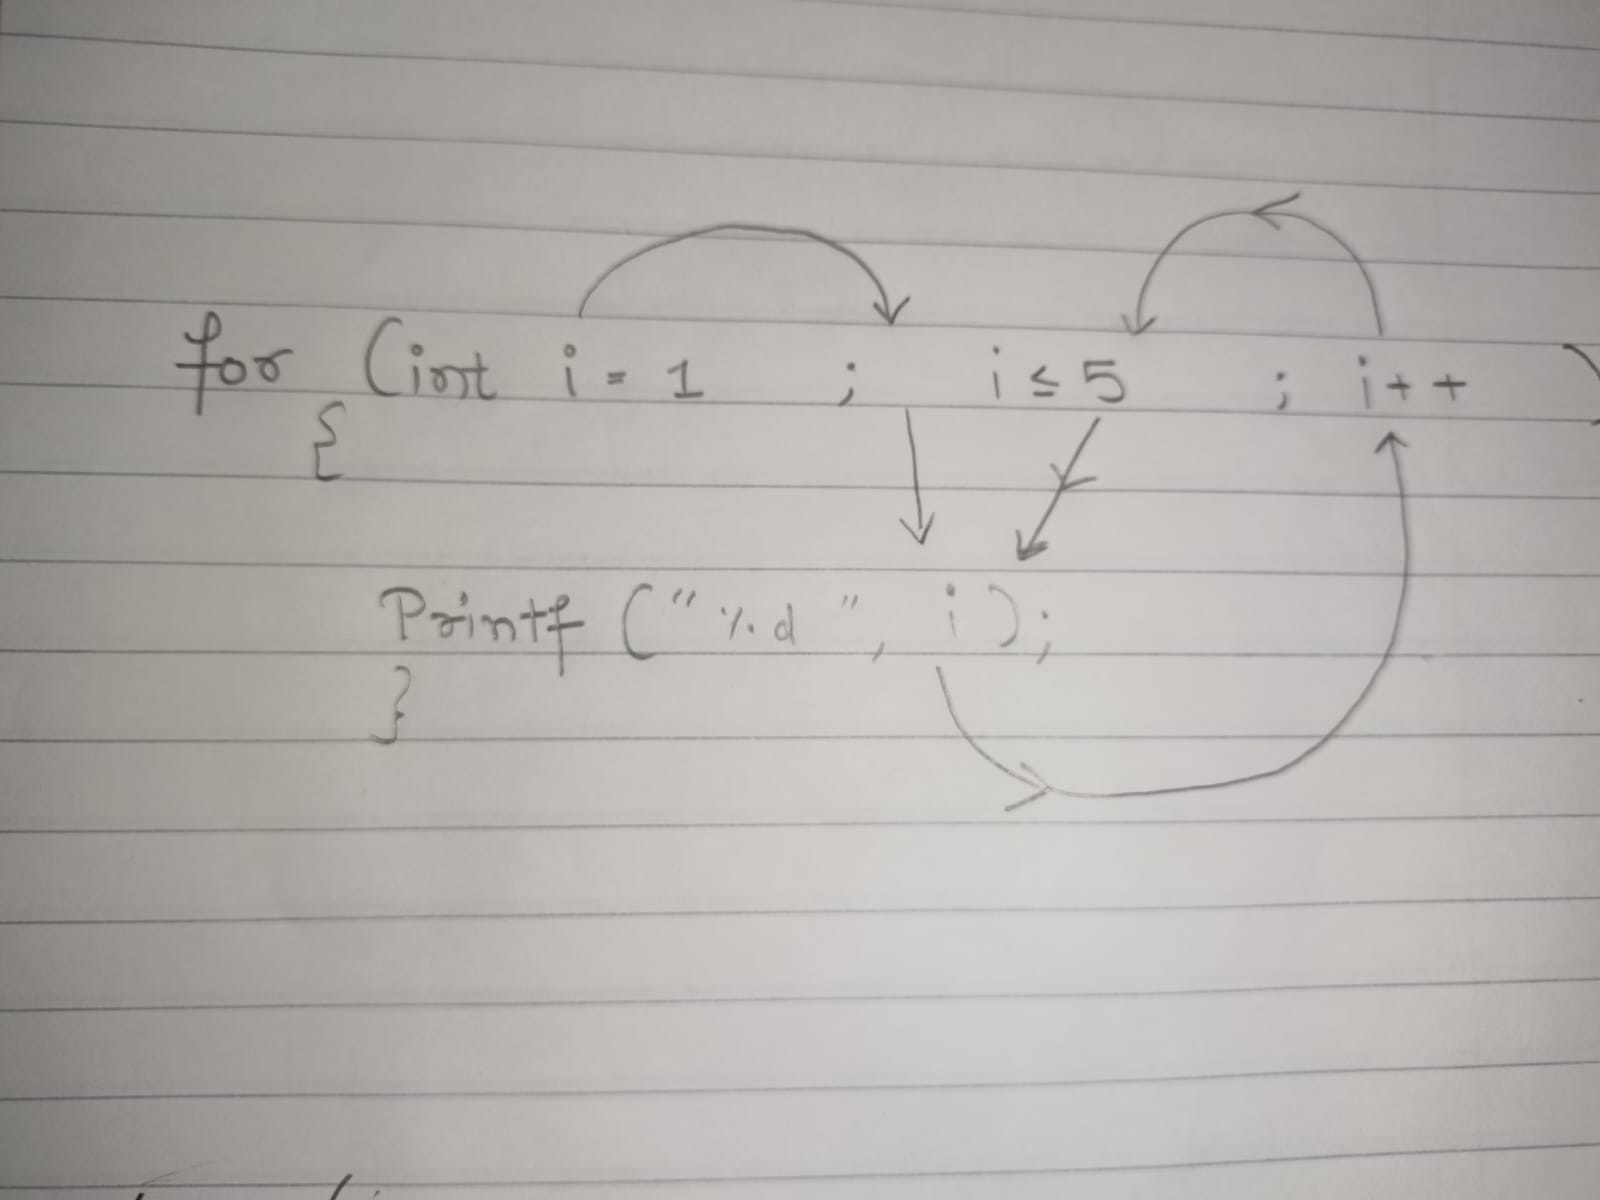 for (int i = 1 ; i ≤ 5 ; i++ )
{
Printf ("%d", i);
}